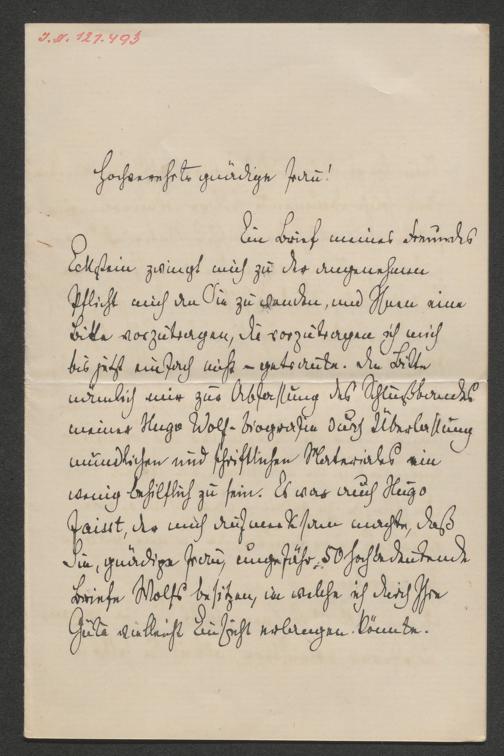 I.N. 127.493
Hochverehrte gnädige Frau!
Ein Brief meines Freundes
Eckstein zwingt mich zu der angenehmen
Pflicht mich an Sie zu wenden, und Ihnen eine
Bitte vorzutragen, die vorzutragen ich mich
bis jetzt einfach nicht – getraute. Die Bitte
nämlich mir zur Abfassung des Schlußbandes
meiner Hugo Wolf-Biografie durch Überlassung
mündlichen und schriftlichen Materiales ein
wenig behilflich zu sein. Es war auch Hugo
Faisst, der mich aufmerksam machte, daß
Sie, gnädige Frau, ungefähr 50 hochbedeutende
Briefe Wolfs besitzen, in welche ich durch Ihre
Güte vielleicht Einsicht erlangen könnte.